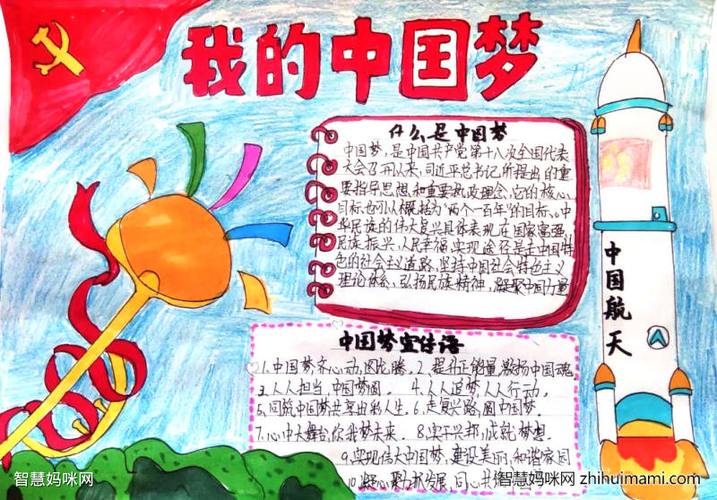 我的中国梦
什么是中国梦
中国梦,是中国共产党第十八次全国代表
大会召开以来,习近平总书记所提出的重
要指导思想和重要执政理念,它的核心
目标也可以概括为"两个一百年"的目标。中
华民族的伟大复兴具体表现在国家富强,
民族振兴,人民幸福,实现途径是走中国特
色的社会主义道路,坚持中国社会特色主义
理论体系,弘扬民族精神,凝聚中国力量
中国航天
中国梦宣传语
1.中国梦齐心动,图腾。2.提升正能量激扬中国魂
3.人人担当,中国梦圆。4.人人追梦,人人行动。
5.同筑中国梦共享出彩人生。6.走复兴路,圆中国梦。
7.心中大舞台你我梦未来。8.实干兴邦,成就梦想。
9.实现伟大中国梦,建设美丽和谐家园
10.凝心聚力求发展,同心共
智慧妈咪网
智慧妈咪网 zhihuimami.com